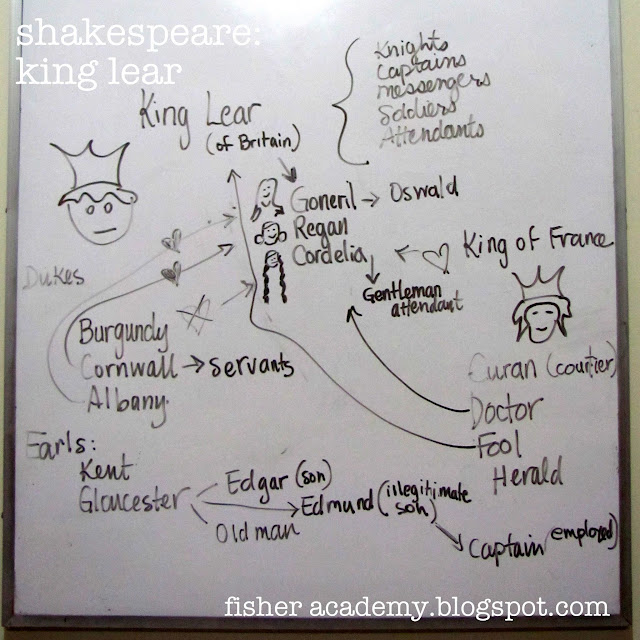 shakespeare:
king lear
Knights
Captains
messengers
Soldiers
Attendants
King Lear
(of Britain)
Goneril → Oswald
Regan
Cordelia
King of France
Gentleman
attendant
Dukes
Burgundy
Cornwall → servants
Albany
Curan (courtier)
Doctor
Fool
Herald
Earls:
Kent
Gloucester
Edgar (son)
Edmund (illegitimate
son)
Old man
Captain (employed)
fisher academy.blogspot.com